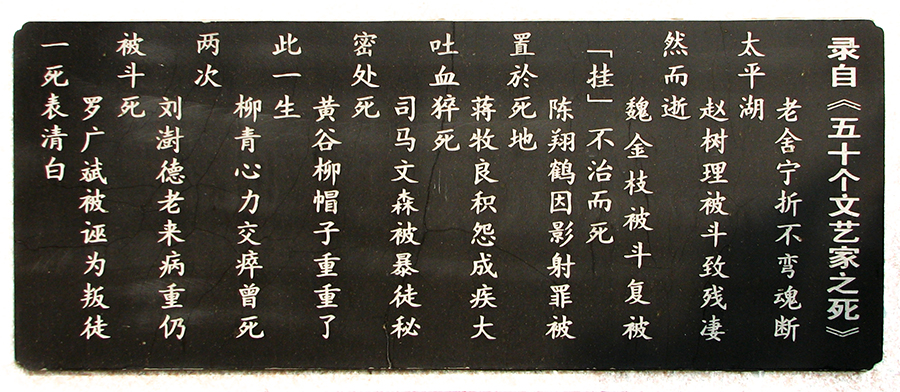 录自《五十个文艺家之死》
老舍宁折不弯魂断
太平湖
赵树理被斗致残凄
然而逝
魏金枝被斗复被
「挂」不治而死
陈翔鹤因影射罪被
置於死地
蒋牧良积怨成疾大
吐血猝死
司马文森被暴徒秘
密处死
黄谷柳帽子重重了
此一生
柳青心力交瘁曾死
两次
刘澍德老来病重仍
被斗死
罗广斌被诬为叛徒
一死表清白